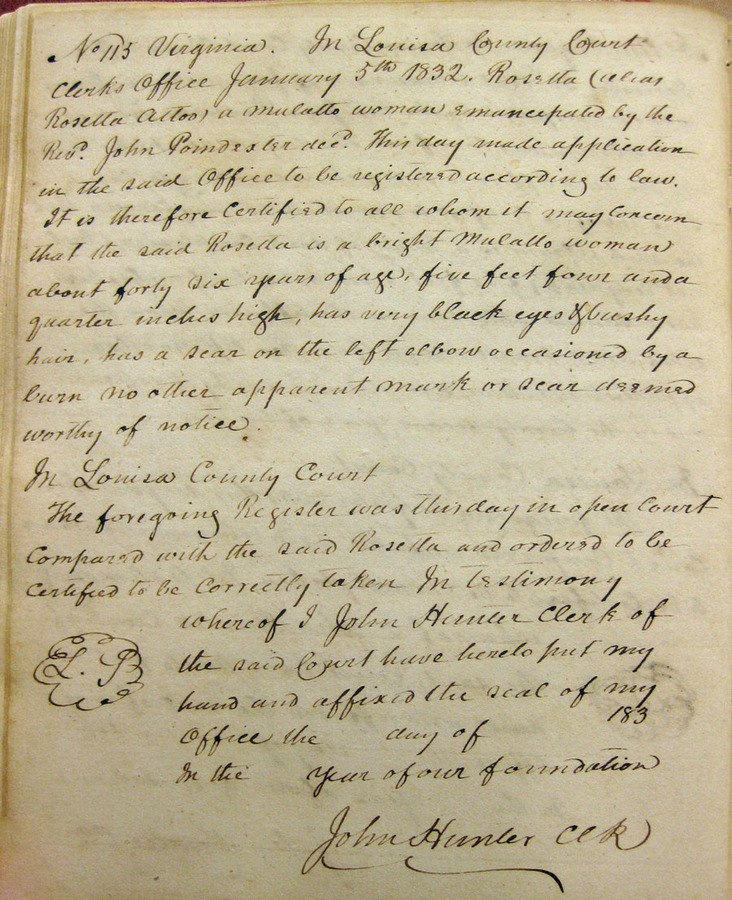 No 115 Virginia. In Louisa County Court
Clerks Office January 5th 1832. Rosetta (alias
Rosetta Attos) a Mulatto woman emancepated by the
Revd. John Poindexter decd. This day made application
in the said Office to be registered according to law.
It is therefore Certified to all whom it may Concern
that the said Rosetta is a bright Mulatto woman
about forty six years of age, five feet four and a
quarter inches high, has very black eyes & bushy
hair, has a scar on the left elbow occasioned by a
burn no other apparent mark or scar deemed
worthy of notice.
In Louisa County Court
The foregoing Register was this day in open Court
Compared with the said Rosetta and ordered to be
Certified to be Correctly taken In testimony
whereof I John Hunter Clerk of
the said Court have hereto put my
L. S.
hand and affixed the seal of my
Office the day of 183
In the year of our foundation
John Hunter Clk